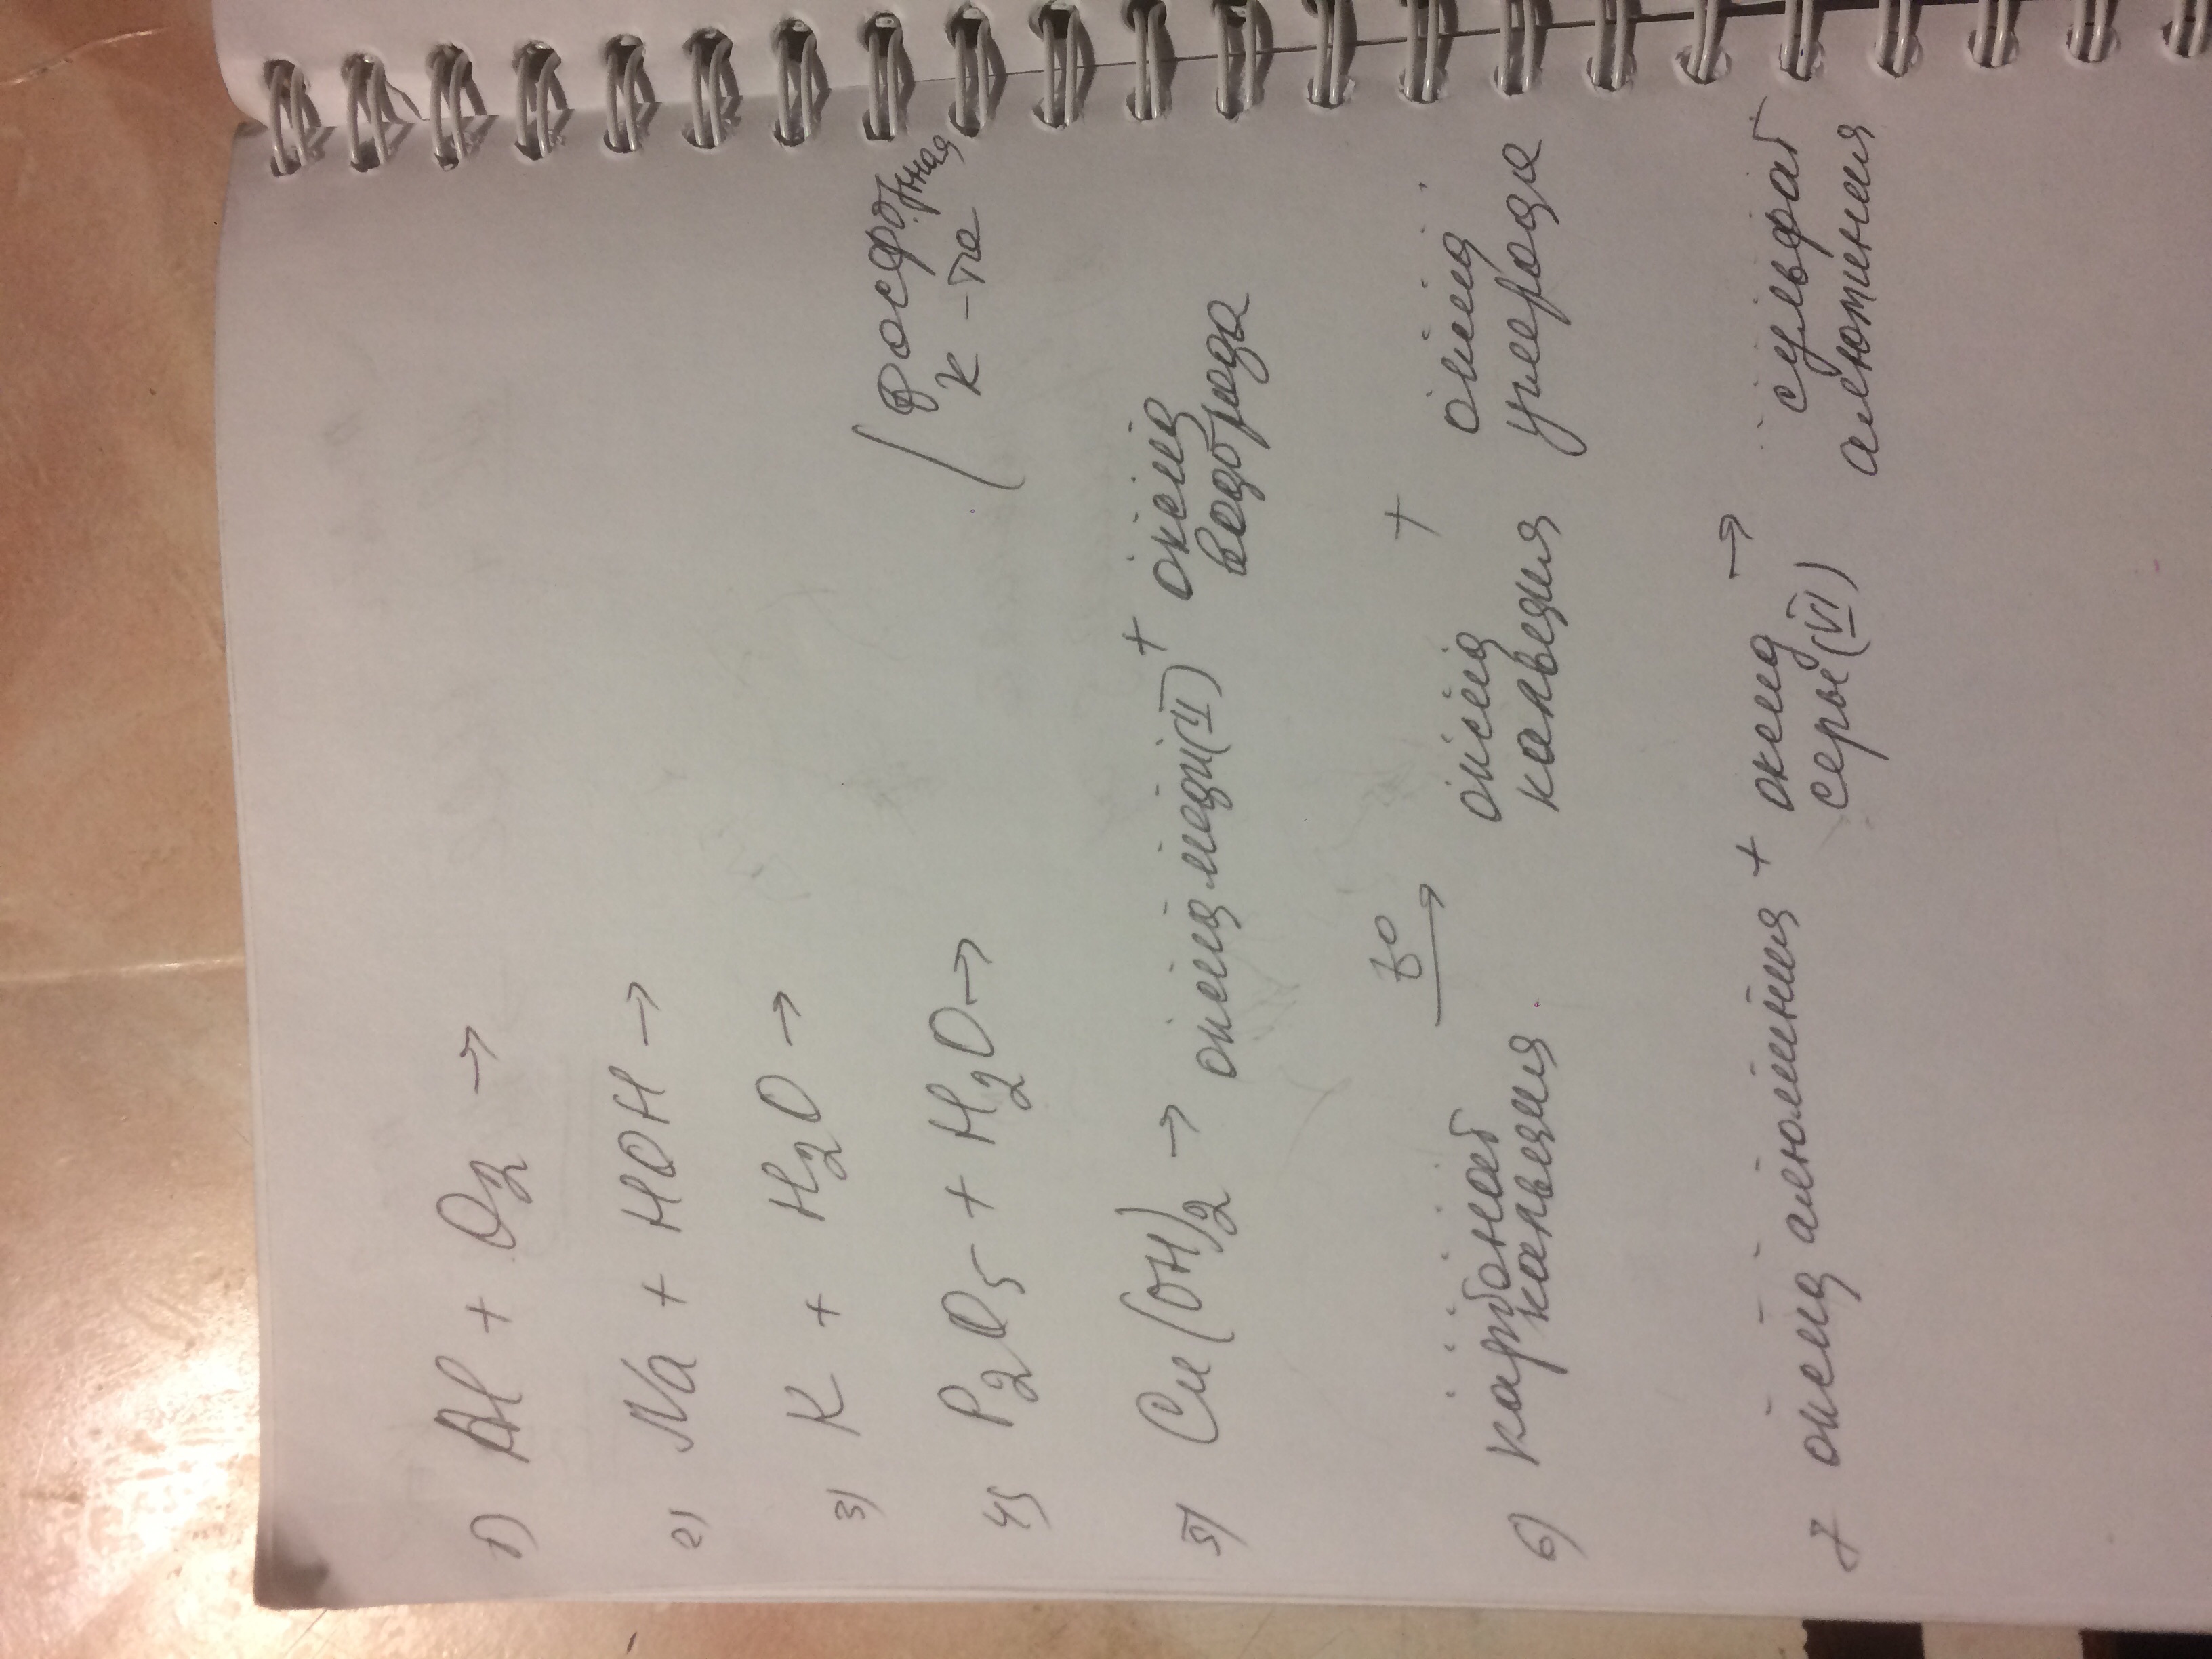 1) Al + O2 →
2) Na + HOH →
3) K + H2O →
4) P2O5 + H2O → (фосфорная
к-та
5) Cu(OH)2 → оксид меди(II) + оксид
водорода
6) карбонат t° → оксид + оксид
кальция кальция углерода
7 оксид алюминия + оксид → сульфат
серы (VI) алюминия